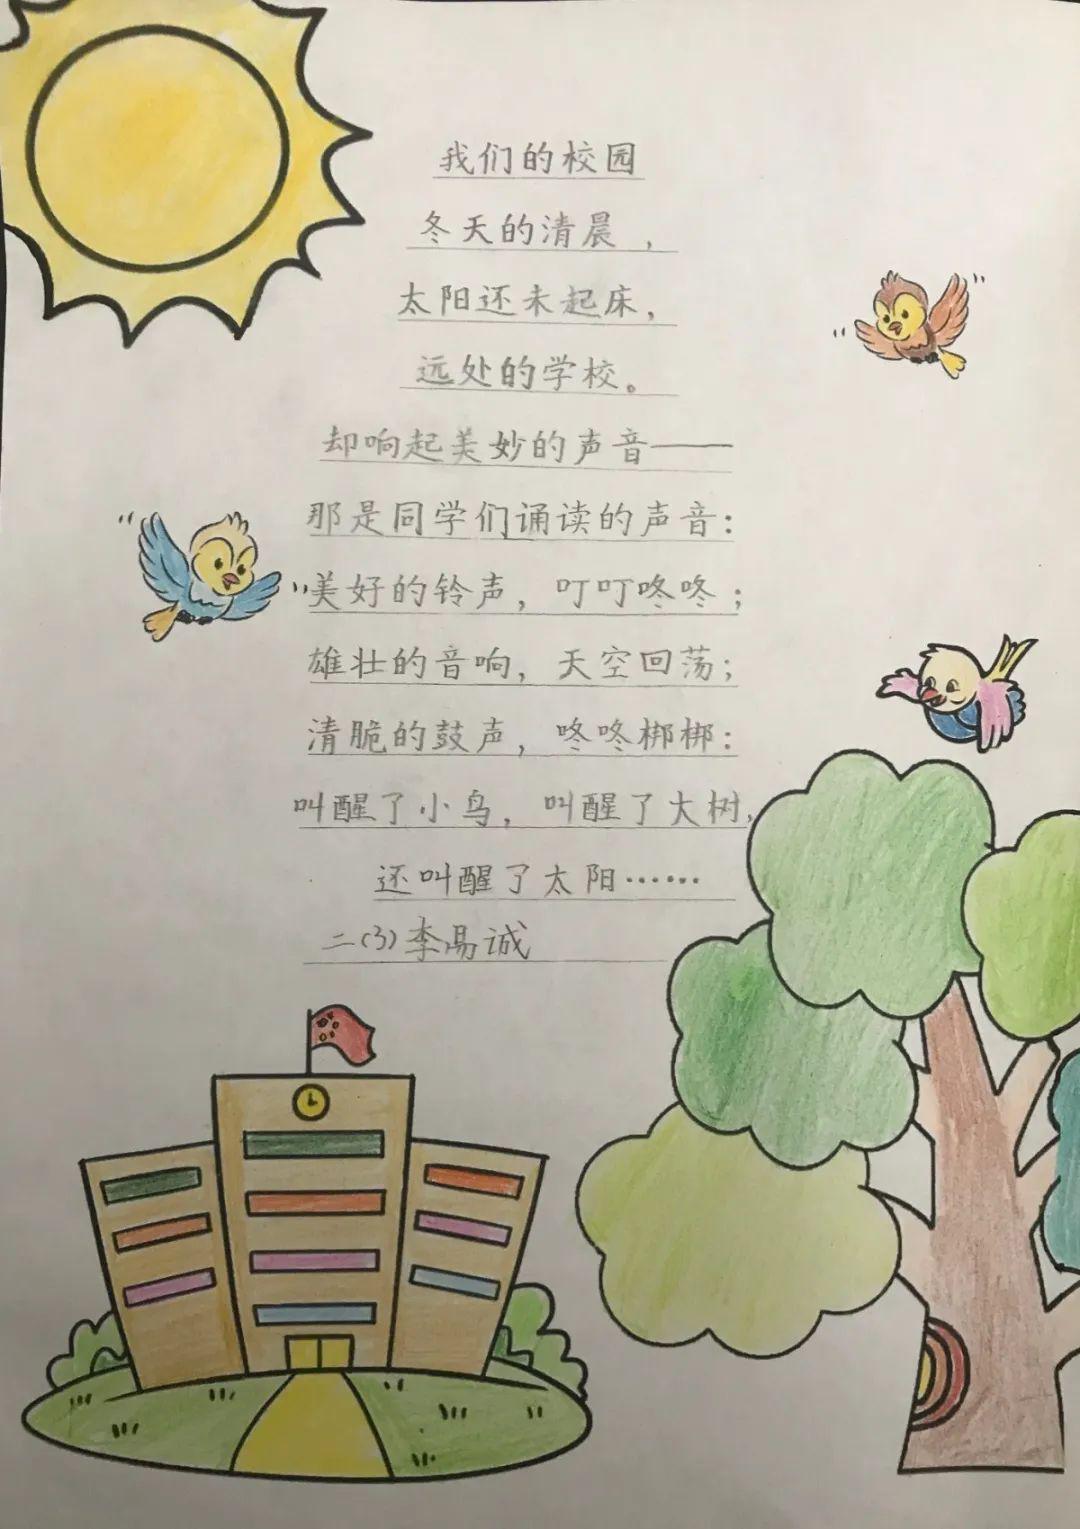 我们的校园
冬天的清晨，
太阳还未起床，
远处的学校。
却响起美妙的声音——
那是同学们诵读的声音：
美好的铃声，叮叮咚咚；
雄壮的音响，天空回荡；
清脆的鼓声，咚咚梆梆：
叫醒了小鸟，叫醒了大树，
还叫醒了太阳……
二(3)李易诚